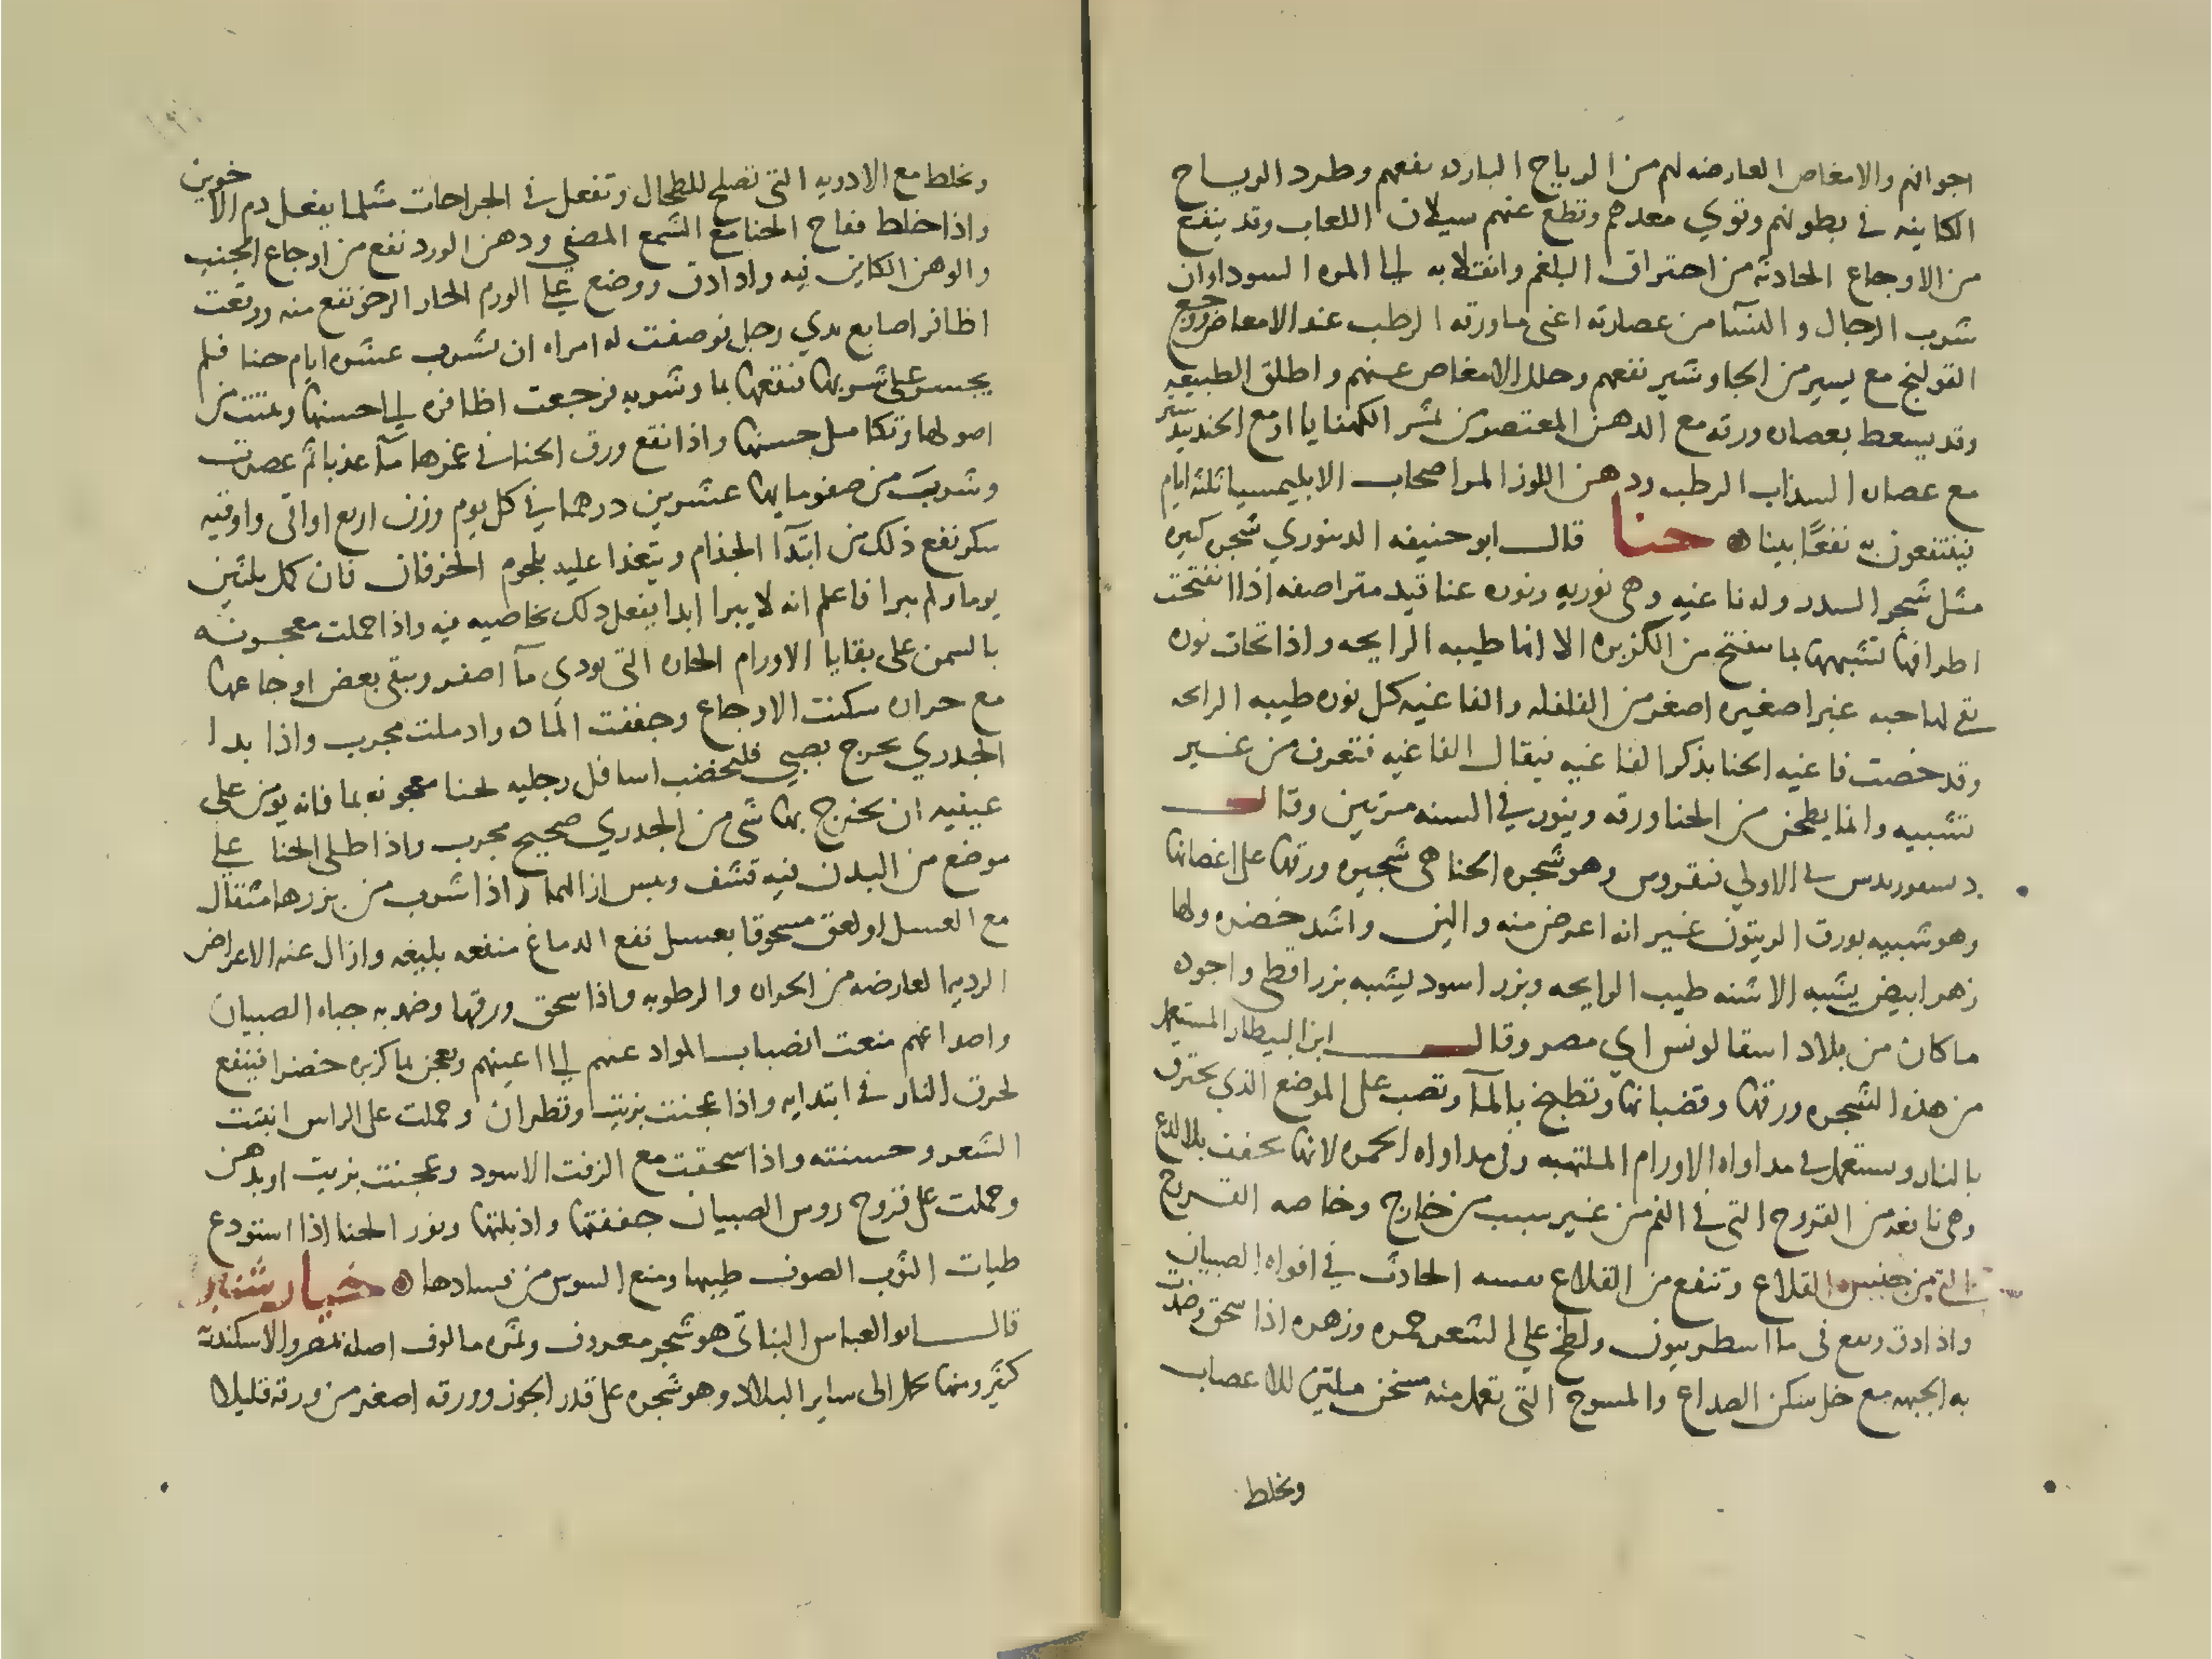 اجوافهم والامغاص العارضه لهم من الرياح البارده نفعهم وطرد الرياح
الكاينه في بطونهم وقوي معدهم وقطع عنهم سيلان اللعاب وقد ينفع
من الاوجاع الحادثه من احتراق البلغم وانقلابه الي المره السودا وان
شرب الرجال والنسآ من عصارته اعني ماورقه الرطب عند الامعا وجع
القولنج مع يسير من الجاوشير نفعهم وحلل الامغاص عنهم واطلق الطبيعيه
وقد يسعط بعصاره ورقه مع الدهن المعتصر من الجندبيدستر
مع عصاره السداب الرطب ودهن اللوز المر اصحاب الابليمسيا ثلثة ايام
فينتفعون به نفعًا بينا حنا قال ابو حنيفه الدينوري شجره كبيره
مثل شجر السدر وله فاغيه وهي نوريه ونوره عناقيد متراصفه اذا انفتحت
اطرافها شبهتها بما ينفتح من الكزبره الا انها طيبه الرايحه واذا تحات نوره
بقي لها حبه غبرا صغيره اصغر من الفلفله والفاغيه كل نوره طيبه الرايحه
وقد خصت فاغيه الحنا بذكر الفاغيه فيقال الفاغيه فتعرف من غير
تشبيه وانما يطحن من الحنا ورقه وينور في السنه مرتين وقال
ديسقوريدس في الاولي فيفروس وهو شجره الحنا هي شجيره ورقها علي اغصانها
وهو شبيه بورق الزيتون غير انه اعرض منه والين واشد خضره ولها
زهر ابيض يشبه الاشنه طيب الرايحه وبزر اسود يشبه بزر اقطي واجوده
ماكان من بلاد اسقالونس اي مصر وقال ابن البيطار المستعمل
من هذه الشجره ورقها وقضبانها وتطبخ بالمآ وتصب علي الموضع الذي يحترق
بالنار وستعمل في مداواه الاورام الملتهبه وفي مداواه الحمره لانها تجفف بلا لدع
وهي نافعه من القروح التي في الفم من غير سبب من خارج وخاصه القروح
التي من جنس القلاع وتنفع من القلاع نفسه الحادث في افواه الصبيان
واذا دق ونقع في ما اسطريبون ولطخ علي الشعر حمره وزهره اذا سحق وضمدت
به الجبهه مع خل سكن الصداع والمسوح التي تعمل منه مسخن ملين للاعصاب
ويخلط
ويخلط مع الادويه التي تصلح للطحال وتفعل في الجراحات مثلما يفعل دم الاخوين
واذا خلط فقاح الحنا مع الشمع المصفي ودهن الورد نفع من اوجاع الجنب
والوهن الكاين فيه واذا دق ووضع علي الورم الحار الرخو نفع منه ووقعت
اظافر اصابع يدي رجل فوصفت له امراه ان يشرب عشره ايام حنا فلم
يجسر علي شربها فنقعها بما وشربه فرجعت اظافره الي احسنها ونبتت من
اصولها وتكامل حسنها واذا نقع ورق الحنا في غمرها مآ عذبا ثم عصرت
وشرب من صفو مايها عشرين درهما في كل يوم وزن اربع اواقي واوقيه
سكر نفع ذلك من ابتدآ الجذام ويتغذا عليه بلحوم الخرفان فان كمل ثلثين
يوما ولم يبرا فاعلم انه لا يبرا ابدا يفعل ذلك بخاصيه فيه واذا حملت معجونه
بالسمن علي بقايا الاورام الحاره التي تودي مآ اصفر ويبقي بعض اوجاعها
مع حراره سكنت الاوجاع وجففت الماده وادملت مجرب واذا بدا
الجدري يخرج بصبي فليخضب اسافل رجليه بحنا معجونه بما فانه يومن علي
عينيه ان يخرج بها شي من الجدري صحيح مجرب واذا طلي الحنا علي
موضع من البدن فيه قشف ويبس ازالهما واذا شرب من بزرها مثقال
مع العسل او لعق مسحوقا بعسل نفع الدماغ منفعه بليغه وازال عنه الاعراض
الرديه العارضه من الحراره والرطوبه واذا سحق ورقها وضمد به جباه الصبيان
واصداغهم منعت انصباب المواد عنهم الي اعينهم ويعجن بما كزبره خضرا فينفع
لحرق النار في ابتدايه واذا عجنت بزيت وقطران وحملت علي الراس انبتت
الشعر وحسنته واذا سحقت مع الزفت الاسود وعجنت بزيت او بدهن
وحملت علي قروح روس الصبيان جففتها واذبلتها ونور الحنا اذا استودع
طيات الثوب الصوف طيبها ومنع السوس من فسادها خيار شنبر
قال ابو العباس النباتي هو شجر معروف وثمره مالوف اصله بمصر والاسكندرية
كثير ومنها يحمل الي ساير البلاد وهو شجره علي قدر الجوز وورقه اصغر من ورقه قليلا